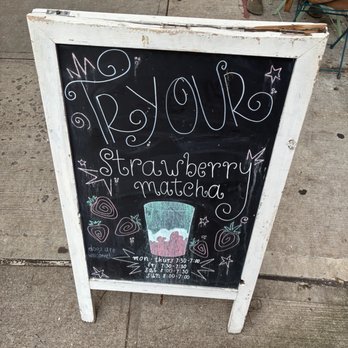 TRY OUR
Strawberry
matcha
dogs are
welcome!
mon - thurs 7:30-7:00
fri 7:30-7:30
sat 8:00-7:30
sun 8:00-7:00